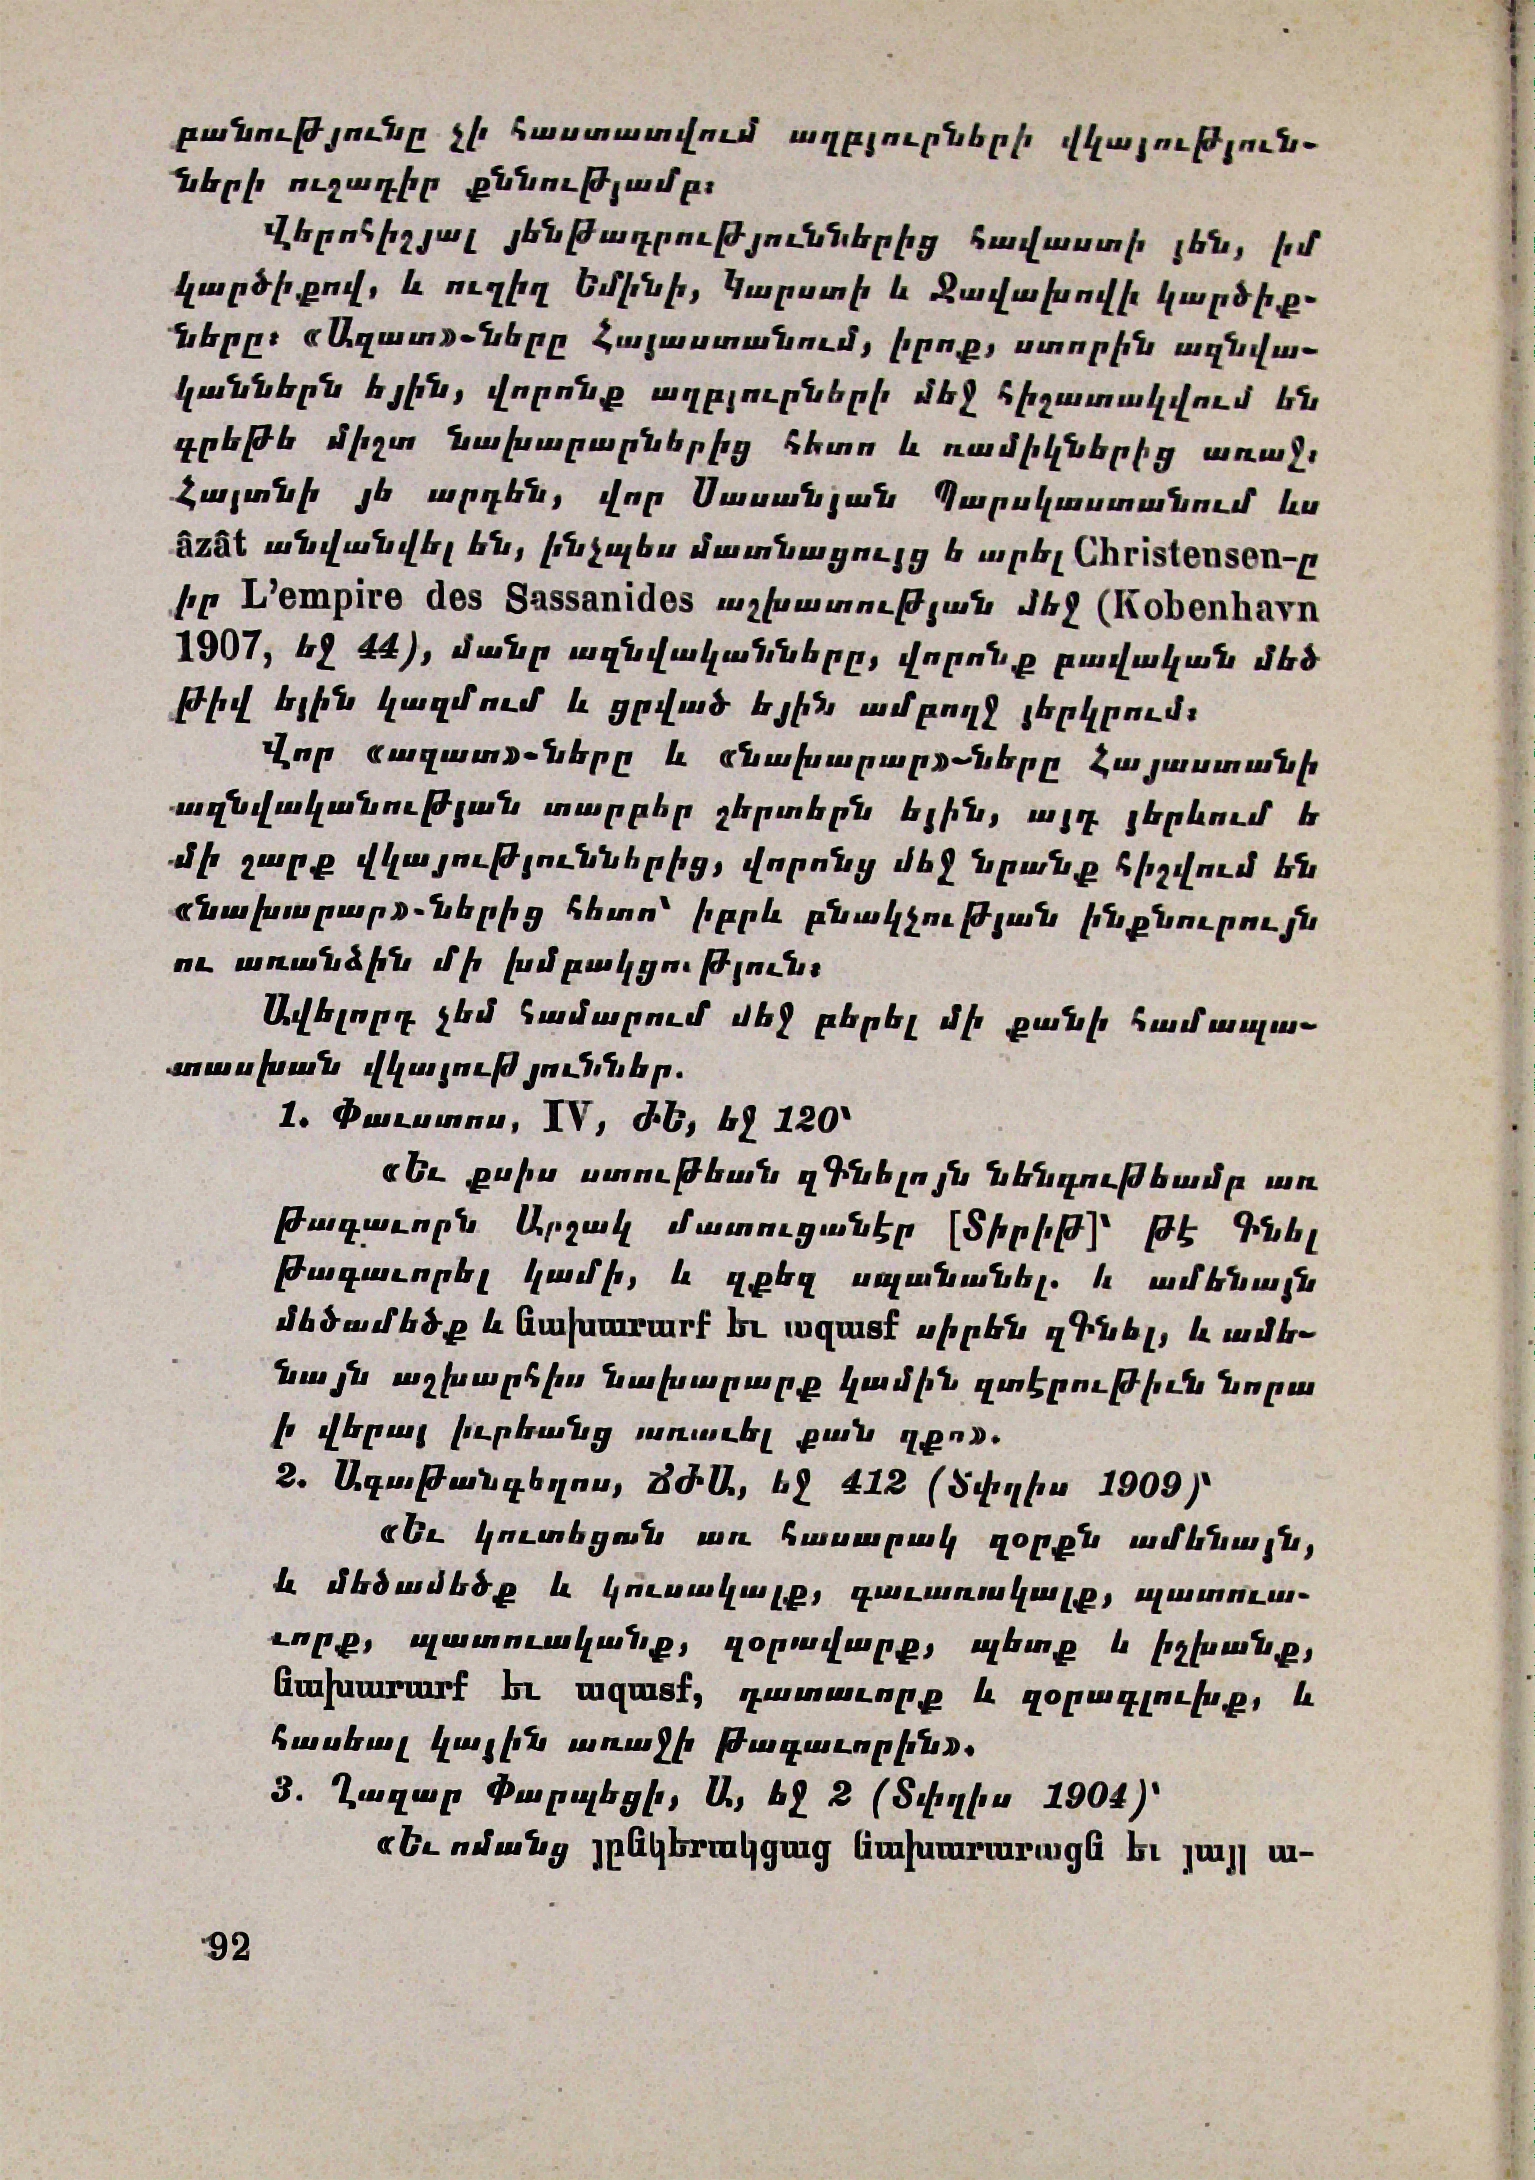 բանությունը չի հաստատվում աղբյուրների վկայություն-
ների ուշադիր քննությամբ։
Վերոհիշյալ յենթադրություններից հավաստի յեն, իմ
կարծիքով, և ուղիղ Եմինի, Կարստի և Ջավախովի կարծիք-
ները։ «Ազատ»-ները Հայաստանում, իրոք, ստորին ազնվա-
կաններն եյին, վորոնք աղբյուրների մեջ հիշատակվում են
գրեթե միշտ նախարարներից հետո և ռամիկներից առաջ։
Հայտնի յե արդեն, վոր Սասանյան Պարսկաստանում ևս
âzât անվանվել են, ինչպես մատնացույց ե արել Christensen-ը
իր L’empire des Sassanides աշխատության մեջ (Kobenhavn
1907, եջ 44), մանր ազնվականները, վորոնք բավական մեծ
թիվ եյին կազմում և ցրված եյին ամբողջ յերկրում։
Վոր «ազատ»-ները և «նախարար»-ները Հայաստանի
ազնվականության տարբեր շերտերն եյին, այդ յերևում ե
մի շարք վկայություններից, վորոնց մեջ նրանք հիշվում են
«նախարար»-ներից հետո՝ իբրև բնակչության ինքնուրույն
ու առանձին մի խմբակցություն։
Ավելորդ չեմ համարում մեջ բերել մի քանի համապա-
տասխան վկայություններ.
1. Փաւստոս, IV, ԺԵ, եջ 120՝
«Եւ քսիս ստութեան զԳնելոյն նենգութեամբ առ
թագաւորն Արշակ մատուցանէր [Տիրիթ]՝ թէ Գնել
թագաւորել կամի, և զքեզ սպանանել. և ամենայն
մեծամեծք և նախարարք եւ ազատք սիրեն զԳնել, և ամե-
նայն աշխարհիս նախարարք կամին զտէրութիւն նորա
ի վերայ իւրեանց առաւել քան զքո».
2. Ագաթանգեղոս, ՃԺԱ, եջ 412 (Տփղիս 1909)՝
«Եւ կուտեցան առ հասարակ զօրքն ամենայն,
և մեծամեծք և կուսակալք, գաւառակալք, պատուա-
ւորք, պատուականք, զօրավարք, պետք և իշխանք,
նախարարք եւ ազատք, դատաւորք և զօրագլուխք, և
հասեալ կային առաջի թագաւորին».
3. Ղազար Փարպեցի, Ա, եջ 2 (Տփղիս 1904)՝
«Եւ ոմանց յընկերակցաց նախարարացն եւ յայլ ա-
92